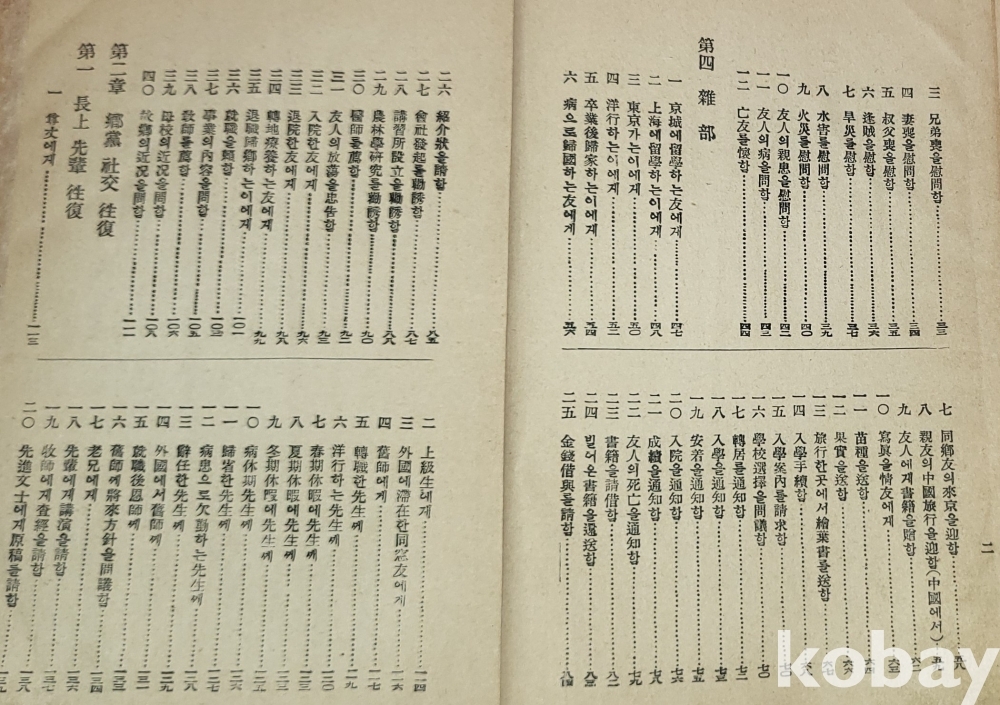 三 兄弟喪을慰問함 三三
四 妻喪을慰問함 三四
五 叔父喪을慰問함 三五
六 逢賊을慰問함 三六
七 旱災를慰問함 三七
八 水害를慰問함 三九
九 火災를慰問함 四〇
一〇 友人의親患을慰問함 四二
一一 友人의病을問함 四三
一二 亡友를懷함 四四
第四 雜部
一 京城에留學하는友에게 四七
二 上海에留學하는이에게 四八
三 東京가는이에게 五〇
四 洋行하는이에게 五二
五 卒業後歸家하는이에게 五四
六 病으로歸國하는友에게 五六
七 同鄕友의來京을迎함 五八
八 親友의中國旅行을迎함(中國에서) 五九
九 友人에게書籍을贈함
一〇 寫眞을情友에게
一一 苗種을送함
一二 果實을送함
一三 旅行한곳에서繪葉書를送함
一四 入學手續함
一五 入學案內를請求함
一六 學校選擇을問議함 七〇
一七 轉居를通知함 七二
一八 入學을通知함 七四
一九 安着을通知함 七五
二〇 入院을通知함 七六
二一 成績을通知함 七八
二二 友人의死亡을通知함 七九
二三 書籍을請借함 八二
二四 빌어온書籍을還送함 八三
二五 金錢借與를請함 八四
二
二六 紹介狀을請함 八五
二七 會社發起를勸誘함 八七
二八 講習所設立을勸誘함 八八
二九 農林學硏究를勸誘함 九〇
三〇 醫師를薦함 九一
三一 友人의放蕩을忠告함 九二
三二 入院한友에게 九三
三三 退院한友에게 九五
三四 轉地療養하는友에게 九六
三五 退職歸鄕하는이에게 九九
三六 就職을賴함 一〇一
三七 畢業의內容을問함 一〇三
三八 敎師를薦함 一〇五
三九 母校의近況을問함 一〇六
四〇 故鄕의近況을問함 一〇八
第二章 鄕黨 社交 徃復 一一一
第一 長上 先輩 徃復
一 尊丈에게 一一三
二 上級生에게 一一四
三 外國에滯在한同窓友에게 一一六
四 舊師에게 一一八
五 轉職한先生께 一一七
六 洋行하는先生께 一一九
七 春期休暇에先生께 一二〇
八 夏期休暇에先生께
九 冬期休暇에先生께
一〇 病休期에先生께
一一 歸省한先生께
一二 病患으로欠勤하는先生께 一二六
一三 辭任한先生께 一二八
一四 外國에서舊師께 一二九
一五 就職後恩師께 一三一
一六 舊師께將來方針을問議함 一三三
一七 老兄에게 一三四
一八 先輩에게講演을請함 一三六
一九 牧師에게査經을請함 一三七
二〇 先進文士에게原稿를請함 一三八
kobay